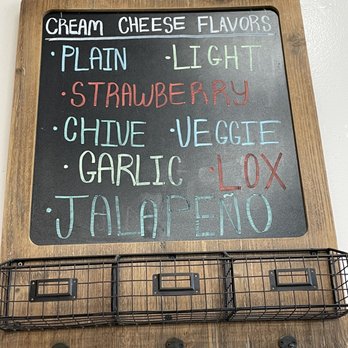 CREAM CHEESE FLAVORS
· PLAIN · LIGHT
· STRAWBERRY
· CHIVE · VEGGIE
· GARLIC · LOX
· JALAPEÑO